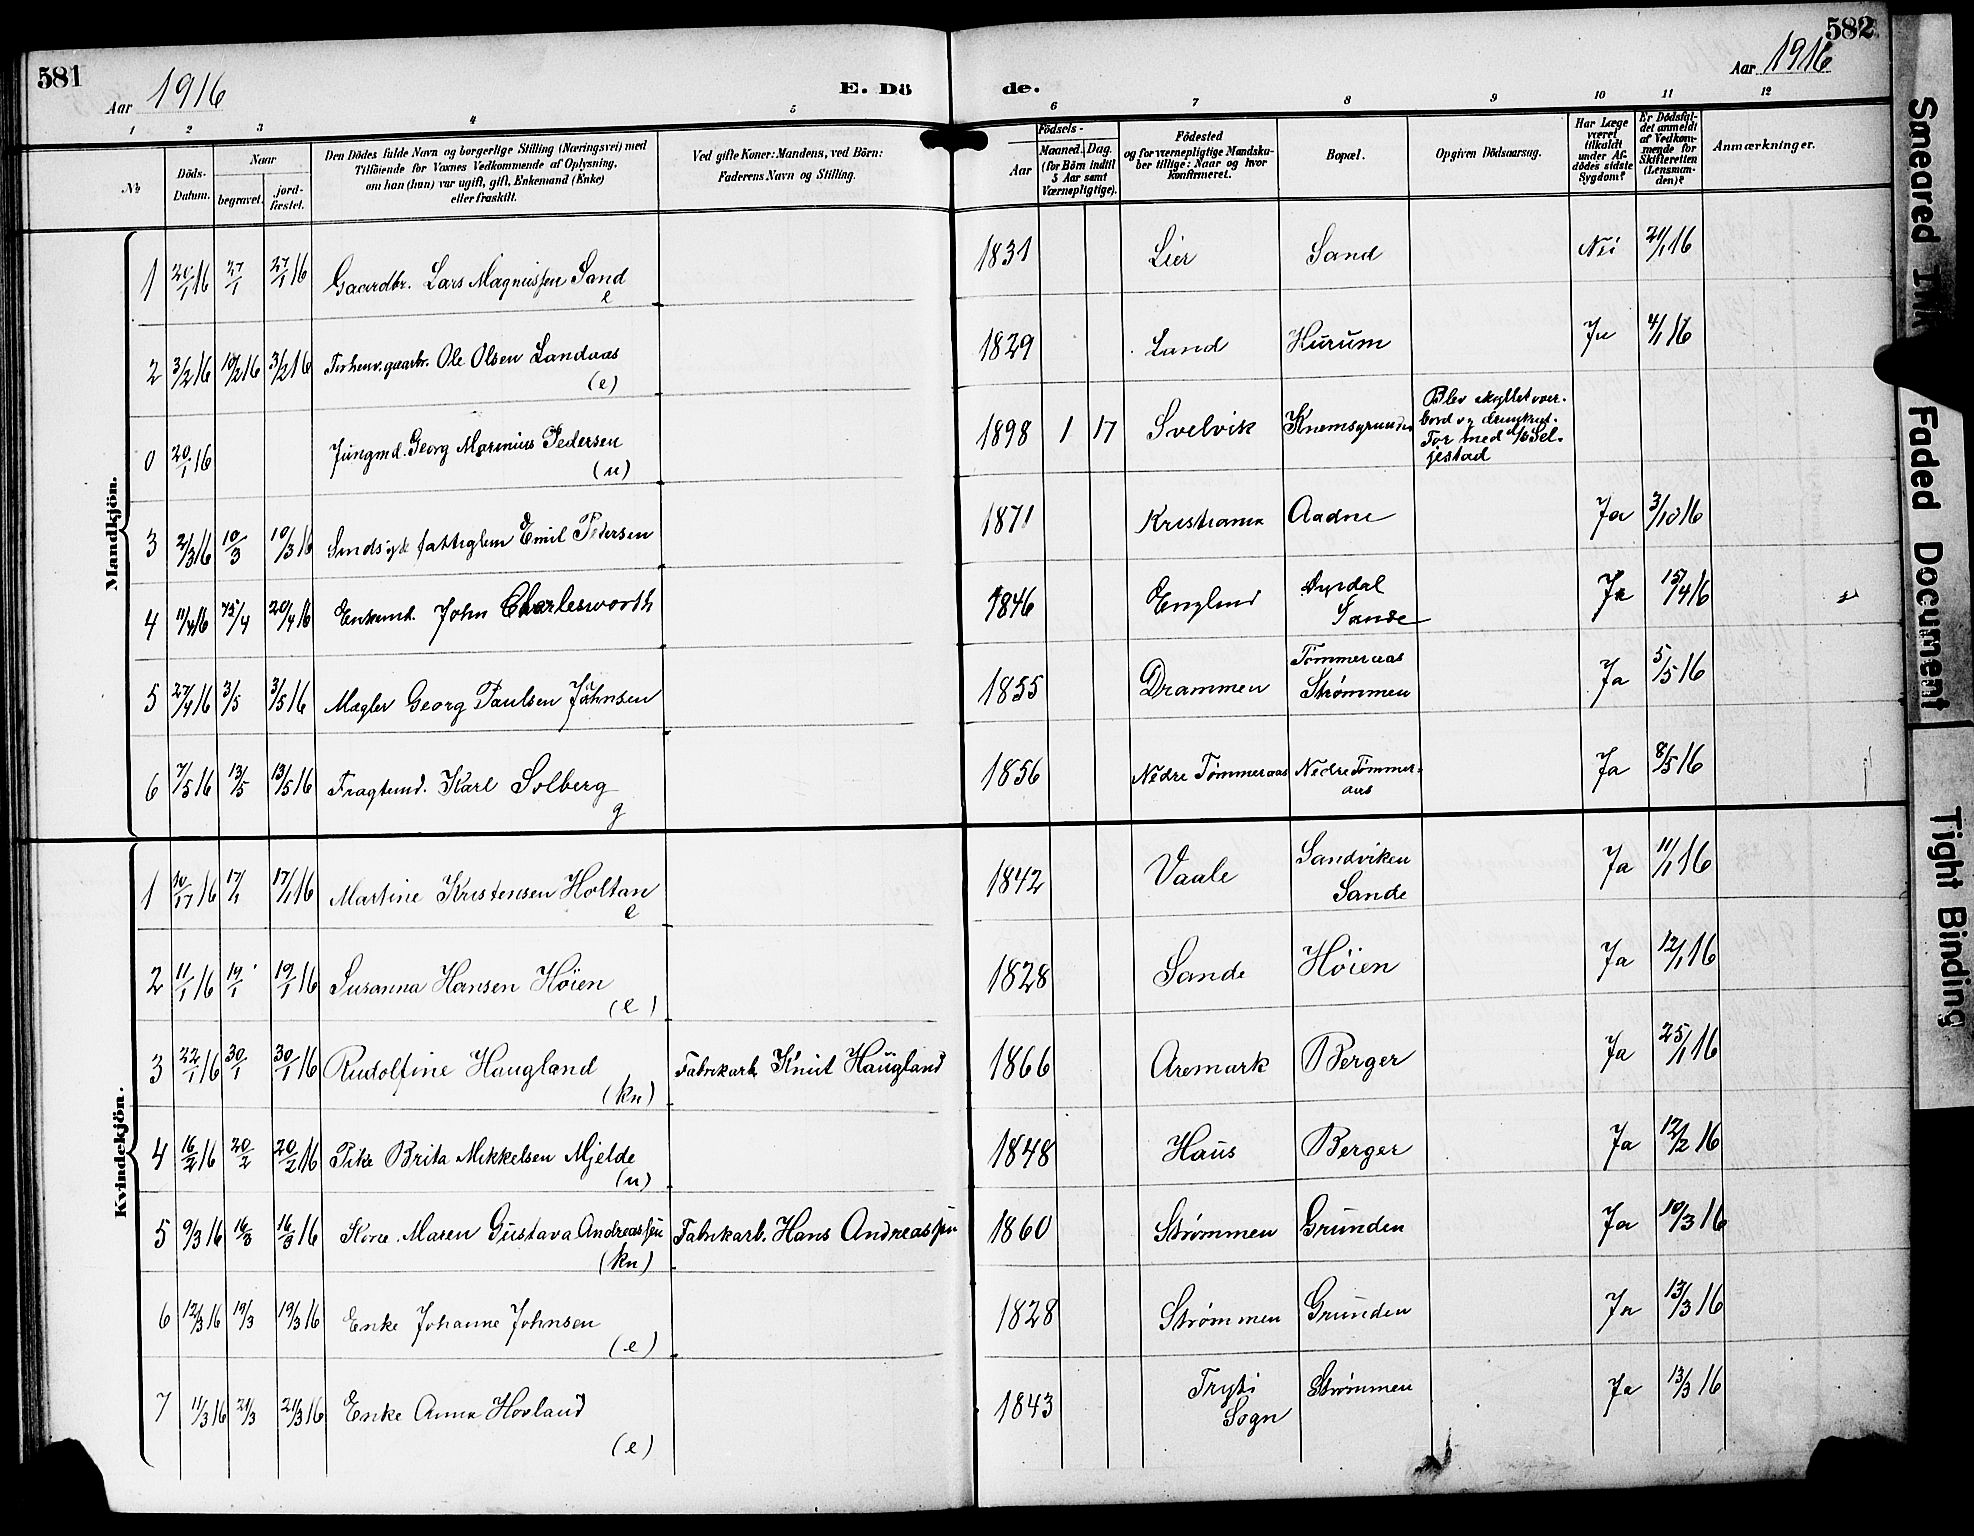 581
Aar 1916
E. Dö
de.
Aar 1916
582
1 2 3 4 5
6 7 8 9 10 11 12
No
Döds-Datum.
Naar
begravet.
jord-fæstet.
Den Dödes fulde Navn og borgerlige Stilling (Næringsvei) med
Tilföiende for Voxnes Vedkommende af Oplysning,
om han (hun) var ugift, gift, Enkemand (Enke)
eller fraskilt.
Ved gifte Koner: Mandens, ved Börn:
Faderens Navn og Stilling.
Födsels-
Aar
Maaned. Dag.
(for Börn indtil
5 Aar samt
Værnepligtige).
Födested
og for værnepligtige Mandska-
ber tillige: Naar og hvor
konfirmeret.
Bopæl.
Opgiven Dödsaarsag.
Har Læge
været
tilkaldt
under Af-
dödes sidste
Sygdom?
Er Dödsfal-
det anmeldt
af Vedkom-
mende for
Skifteretten
(Lensman-
den)?
Anmærkninger.
Mandkjön.
1 20/1 16 27/1 27/1 16 Gaardbr. Lars Magnussen Sand e 1831 Lier Sand Nei 21/1 16
2 3/2 16 10/2 16 3/2 16 Forhenv. gaarbr. Ole Olsen Landaas (e) 1829 Land Hurum Ja 4/1 16
0 20/1 16 Jungmd. Georg Marinius Pedersen (u) 1898 1 17 Svelvik Knemsgrunden Blev skyllet over-
bord og druknet.
For med d/s Sel-
jestad
3 2/3 16 10/3 10/3 16 Sindssyge fattiglem Emil Pedersen 1871 Kristiania Aadne Ja 3/10 16
4 11/4 16 15/4 20/4 16 Enkemd. John Charlesworth 1846 England Dyrdal
Sande Ja 15/4 16
5 27/4 16 3/5 3/5 16 Mægler Georg Paulsen Johnsen 1855 Drammen Tømmeraas
Strømmen Ja 5/5 16
6 7/5 16 13/5 13/5 16 Fragtemd. Karl Solberg g 1856 Nedre Tømmeraas Nedre Tømmer-
aas Ja 8/5 16
Kvindekjön.
1 10/17 16 17/1 17/1 16 Martine Kristensen Holtan e 1842 Vaale Sandviken
Sande Ja 11/1 16
2 11/1 16 19/1 19/1 16 Susanna Hansen Høien (e) 1828 Sande Høien Ja 12/1 16
3 22/1 16 30/1 30/1 16 Rudolfine Haugland (kn) Fabrikarb. Knut Haugland 1866 Aremark Berger Ja 25/1 16
4 16/2 16 20/2 20/2 16 Pike Brita Mikkelsen Mjelde (u) 1848 Haus Berger Ja 12/2 16
5 9/3 16 16/3 16/3 16 Kone Maren Gustava Andreassen (kn) Fabrikarb. Hans Andreassen 1860 Strømmen Grunden Ja 10/3 16
6 12/3 16 19/3 19/3 16 Enke Johanne Johnsen (e) 1828 Strømmen Grunden Ja 13/3 16
7 11/3 16 21/3 21/3 16 Enke Anna Hovland (e) 1843 Fryti
Sogn Strømmen Ja 13/3 16
Smeared Ink
Faded Document
Tight Binding